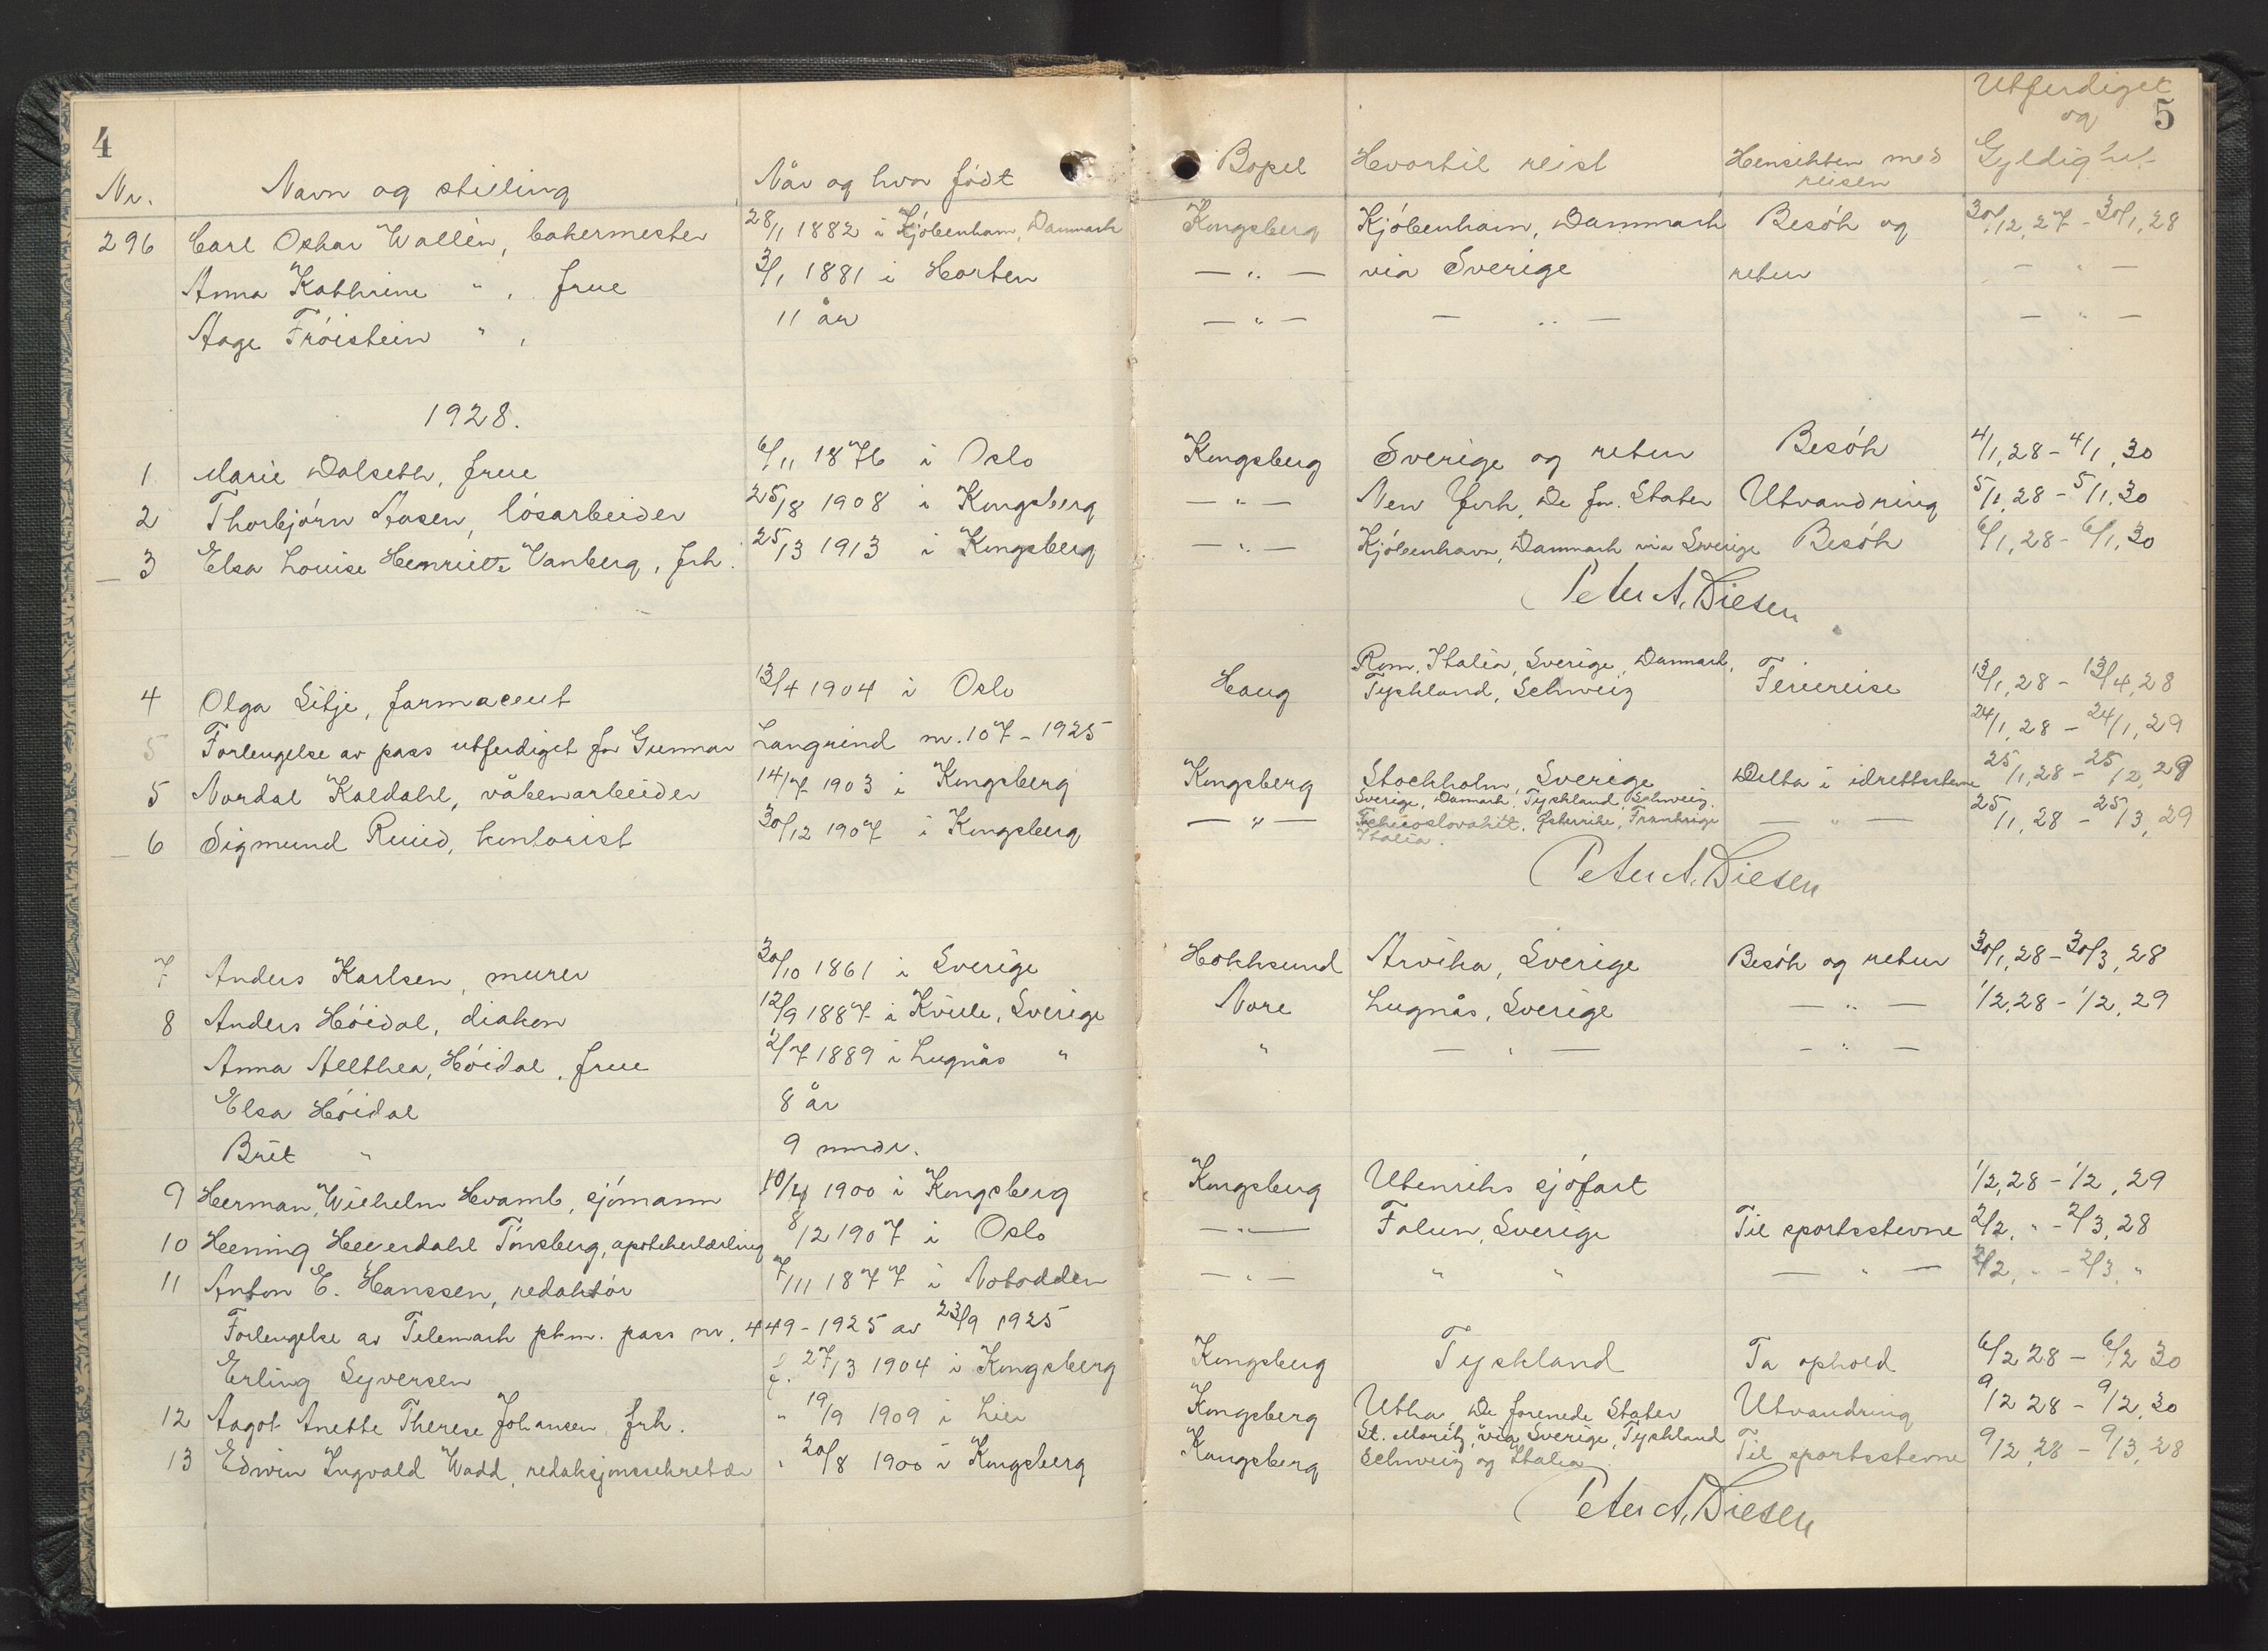 4
5
Nr. Navn og stilling Når og hvor født Bopel Hvortil reist Hensikten med reisen Utferdiget og Gyldighet
296 Carl Oskar Wallén, bakermester 28/11 1882 i Kjøbenhavn, Danmark Kongsberg Kjøbenhavn, Danmark Besøk og 30/12,27 - 30/1,28
Anna Kathrine " , frue 3/1 1881 i Horten — " — via Sverige retur — " —
Aage Frøistein " , 11 år — " — — " — — " —
1928.
1 Marie Dalseth, frue 6/11 1876 i Oslo Kongsberg Sverige og retur Besøk 4/1,28 - 4/1,30
2 Thorbjørn Aasen, løsarbeider 25/8 1908 i Kongsberg — " — New York, De for. Stater Utvandring 5/1,28 - 5/1,30
3 Elsa Louise Henriette Vanberg, frk. 25/3 1913 i Kongsberg — " — Kjøbenhavn, Danmark via Sverige Besøk 6/1,28 - 6/1,30
Peter A. Diesen
4 Olga Litje, farmaceut 13/4 1904 i Oslo Haug Rom, Italia, Sverige, Danmark, Tyskland, Schweiz Feriereise 13/1,28 - 13/4,28
5 Forlengelse av pass utferdiget for Gunnar Langrind nr. 107 - 1925 24/1,28 - 24/1,29
5 Nordal Kaldahl, våbenarbeider 14/7 1903 i Kongsberg Kongsberg Stockholm, Sverige Delta i idrettsstevne 25/1,28 - 25/2,28
6 Sigmund Ruud, kontorist 30/12 1907 i Kongsberg — " — Sverige, Danmark, Tyskland, Schweiz, Tschecoslovakit, Østerrike, Frankrige Italia. — " — 25/1,28 - 25/3,29
Peter A. Diesen
7 Anders Karlsen, murer 30/10 1861 i Sverige Hokksund Arvika, Sverige Besøk og retur 30/1,28 - 30/3,28
8 Anders Høidal, diakon 12/9 1887 i Kville, Sverige Nore Lugnås, Sverige — " — 1/2,28 - 1/2,29
Anna Allthea, Høidal, frue 2/7 1889 i Lugnås " " — " — — " —
Elsa Høidal 8 år
Brit " 9 mndr.
9 Herman, Wilhelm Hvamb, sjømann 10/4 1900 i Kongsberg Kongsberg Utenriks sjøfart 1/2,28 - 1/2,29
10 Henning Heyerdahl Tønsberg, apotekerlærling 8/12 1907 i Oslo — " — Falun, Sverige Til sportsstevne 2/2, " - 2/3,28
11 Anton E. Hanssen, redaktør 7/11 1877 i Notodden — " — " " — " — 2/2, " - 2/3, "
Forlengelse av Telemark pkm. pass nr. 449 - 1925 av 23/9 1925
Erling Syversen f. 27/3 1904 i Kongsberg Kongsberg Tyskland Ta ophold 6/2 28 - 6/2 30
12 Aagot Anette Therese Johansen, frk. " 19/9 1909 i Lier Kongsberg Utha De forenede Stater Utvandring 9/2 28 - 9/2,30
13 Edwin Ingvald Wadd, redaksjonssekretær " 20/8 1900 i Kongsberg Kongsberg St. Moritz, via Sverige, Tyskland Schweiz og Italia Til sportsstevne 9/2,28 - 9/3,28
Peter A. Diesen